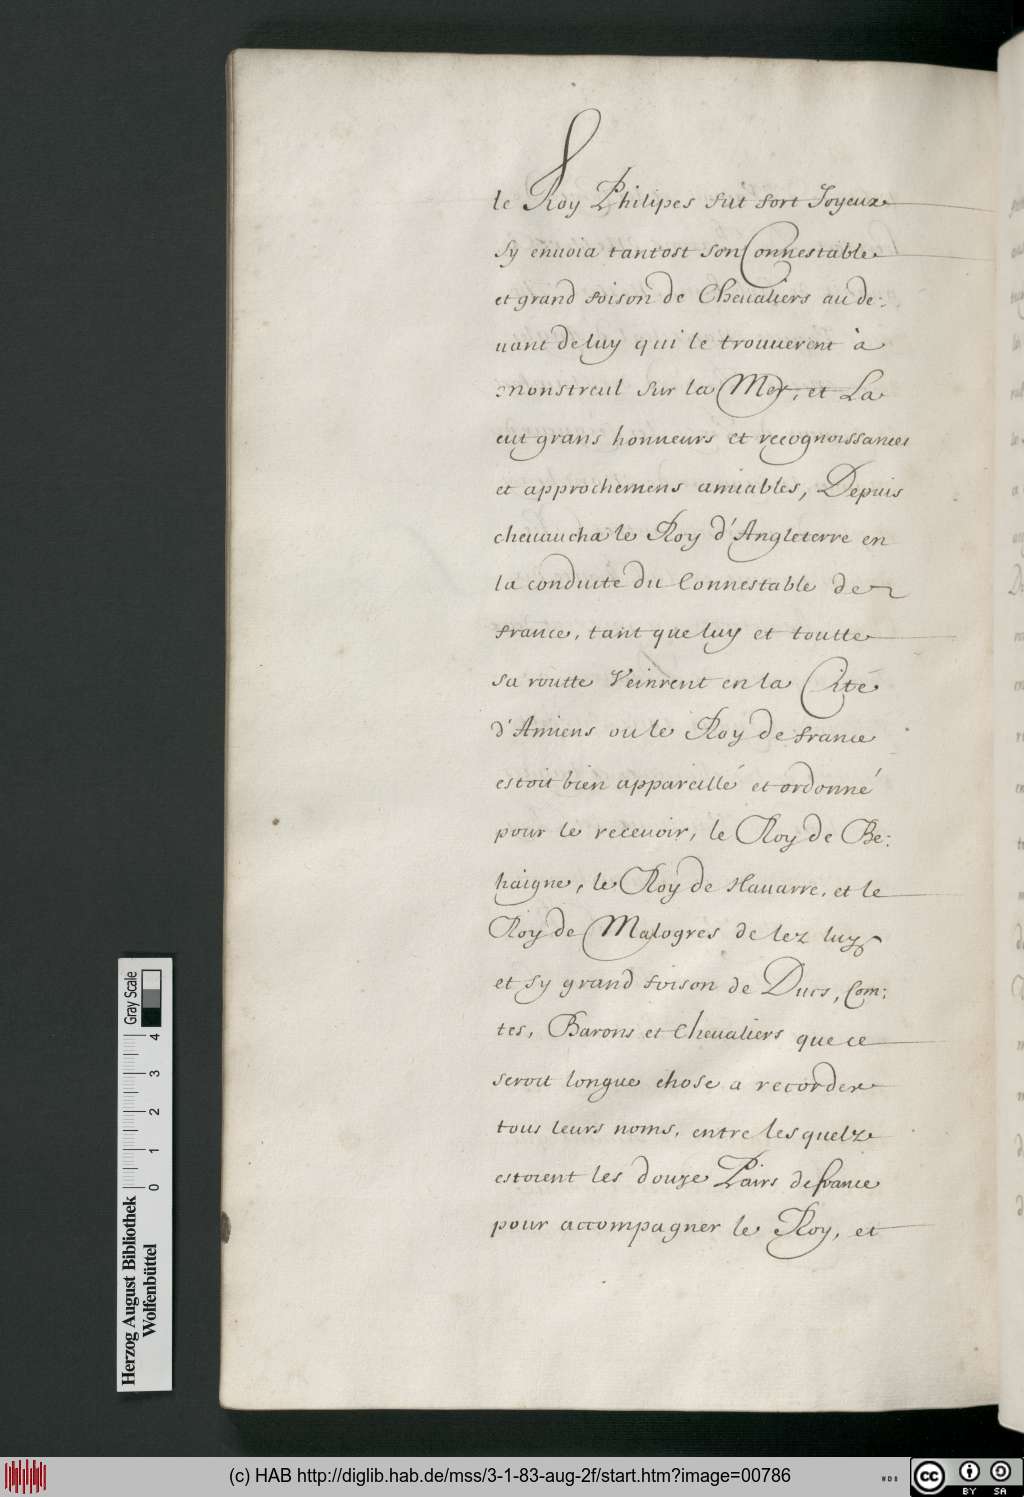 le Roy Philipes fut fort Joyeux
sy enuoia tantost son Connestable
et grand foison de Cheualiers au de:
uant de luy qui le trouuerent à
monstreul sur la Mer, et La
eut grans honneurs et recognoissances
et approchemens amiables, Depuis
cheuaucha le Roy d'Angleterre en
la conduite du Connestable de
france, tant que luy et toutte
sa routte Veinrent en la Cité
d'Amiens ou le Roy de france
estoit bien appareillé et ordonné
pour le receuoir, le Roy de Be:
haigne, le Roy de Nauarre, et le
Roy de Malogres de lez luy
et sy grand foison de Ducs, Com:
tes, Barons et Cheualiers que ce
seroit longue chose a recorder
tous leurs noms, entre lesquelz
estoient les douze Pairs de france
pour accompagner le Roy, et
Herzog August Bibliothek
Wolfenbüttel
0 1 2 3 4
Gray Scale
(c) HAB http://diglib.hab.de/mss/3-1-83-aug-2f/start.htm?image=00786
WDB
cc
BY SA